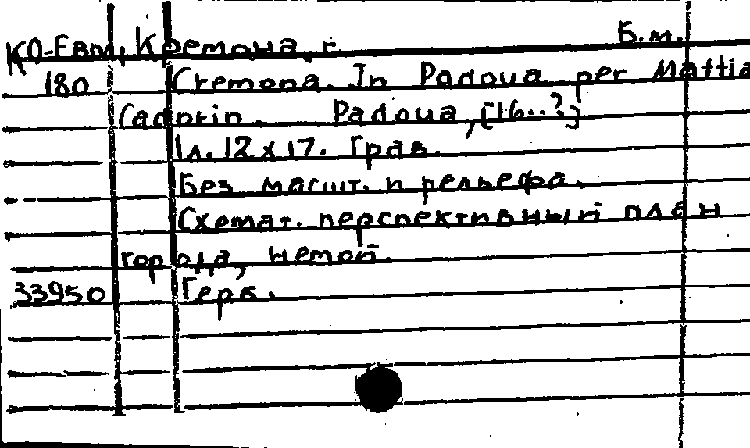 КО-Евр., Кремона, г. Б.м.
180 Cremona. In Padoua per Mattia
Cadorin. Padoua, [16..?]
1л. 12x17. Грав.
Без масшт. и рельефа.
Схемат. перспективный план
города, немой.
33950 Герб.